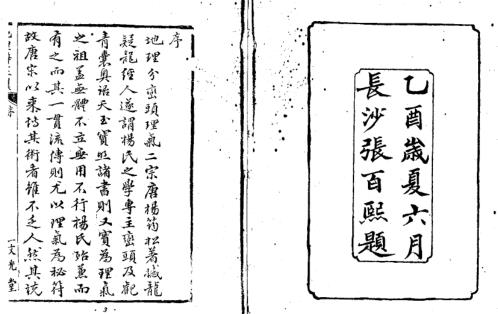 乙酉歲夏六月
長沙張百熙題
序
地理分巒頭理氣二宗唐楊筠松著撼龍
疑龍經人遂謂楊氏之學專主巒頭及觀
青囊奧語天玉寶照諸書則又實為理氣
之祖蓋無體不立無用不行楊氏殆兼而
有之而其一貫流傳則尤以理氣為秘符
故唐宋以來恃其術者雖不乏人然其說
文光堂